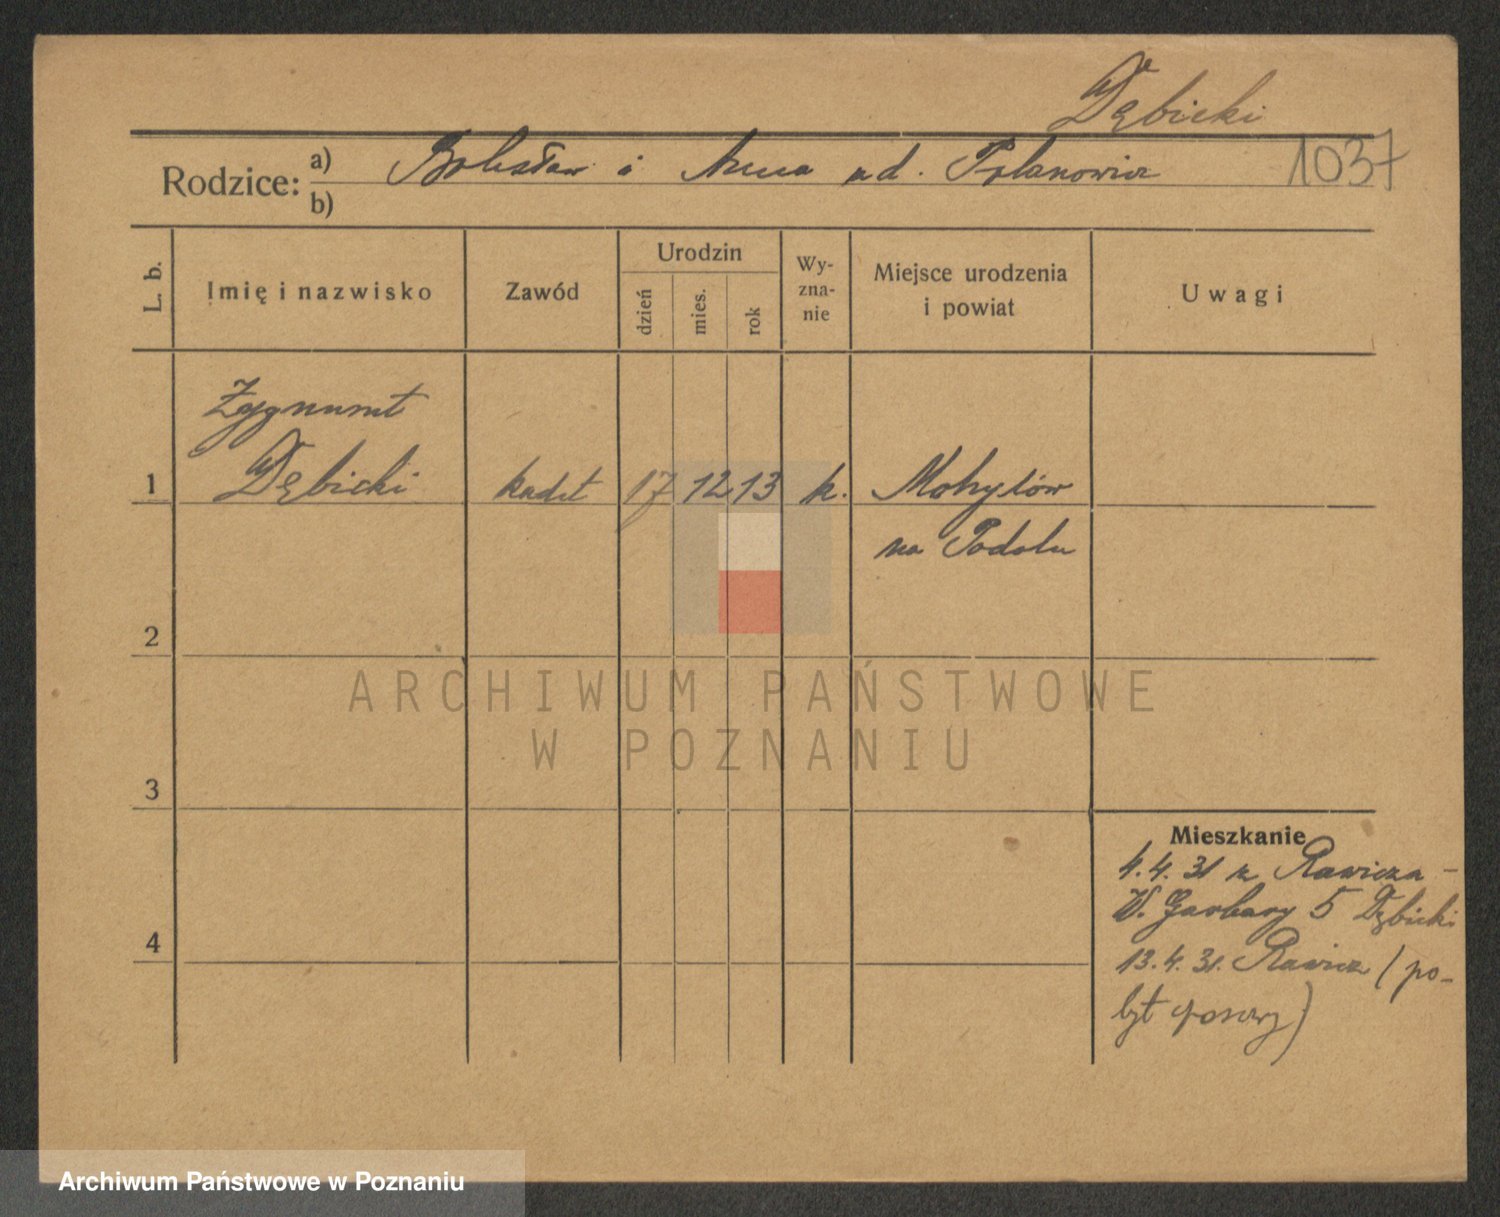 Dębicki
Rodzice: a) Bolesław i Anna ud. Polanowicz 1037
b)
L. b. Imię i nazwisko Zawód Urodzin dzień mies. rok Wyznanie Miejsce urodzenia i powiat Uwagi
Zygmunt
1 Dębicki kadet 17 12 13 k. Mohylów
na Podolu
2
ARCHIWUM PAŃSTWOWE
W POZNANIU
3
Mieszkanie
4.4.31 z Rawicza -
W. Garbary 5 Dębicki
4
13.4.31. Rawicz (po-
byt czasowy)
Archiwum Państwowe w Poznaniu